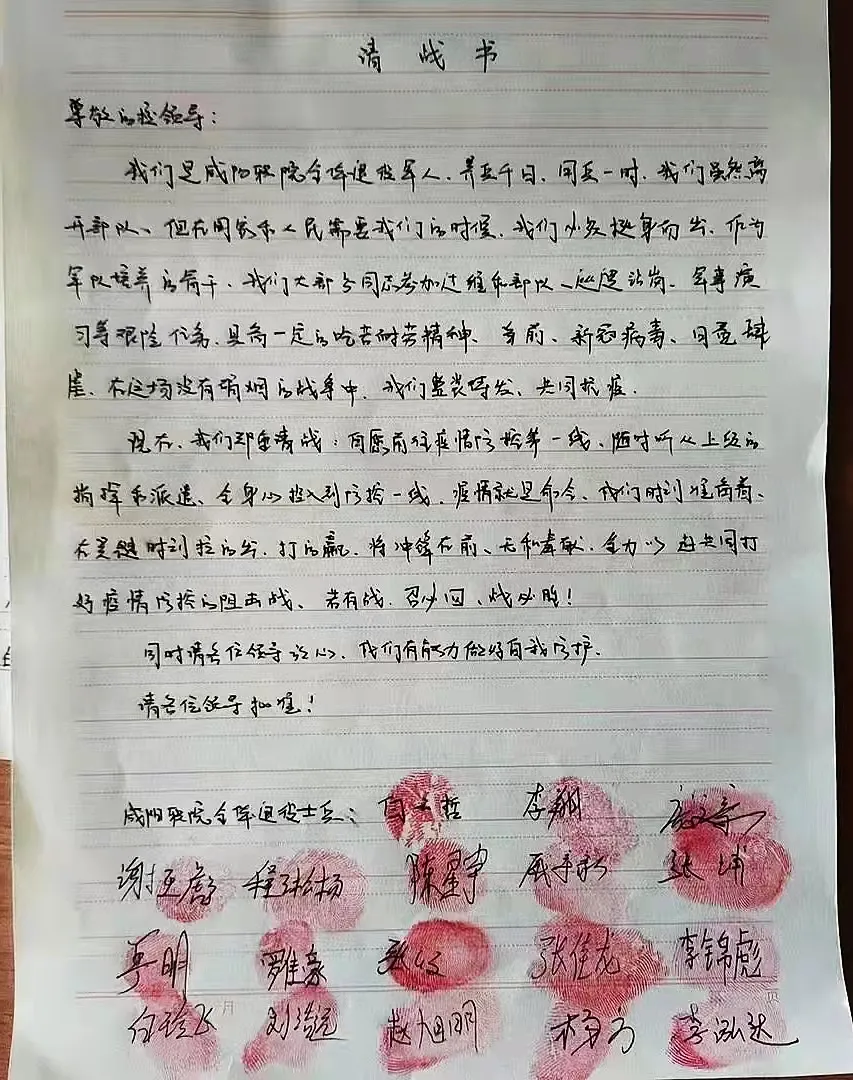 请战书
尊敬的校领导：
我们是咸阳职院全体退役军人，养兵千日，用兵一时，我们虽然离
开部队、但在国家和人民需要我们的时候，我们必须挺身而出，作为
军队培养的骨干、我们大部分同志参加过维和部队、巡逻站岗、军事演
习等艰险任务，具备一定的吃苦耐劳精神、当前、新冠病毒、日益肆
虐、在这场没有硝烟的战争中，我们整装待发、共同抗疫．
现在、我们郑重请战：自愿前往疫情防控第一线、随时听从上级的
指挥和派遣、全身心投入到防控一线．疫情就是命令、我们时刻准备着、
在关键时刻拉的出，打的赢，将冲锋在前、无私奉献，全力以赴共同打
好疫情防控的阻击战、若有战，召必回、战必胜！
同时请各位领导放心、我们有能力做好自我防护．
请各位领导批准！
咸阳职院全体退役士兵： 李翔
陈星宇
罗佳豪 张佳龙 李锦彪
赵旭明 李泓达
月 页